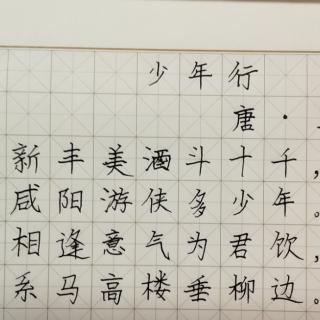 少年行
唐·
新丰美酒斗十千，
咸阳游侠多少年。
相逢意气为君饮，
系马高楼垂柳边。